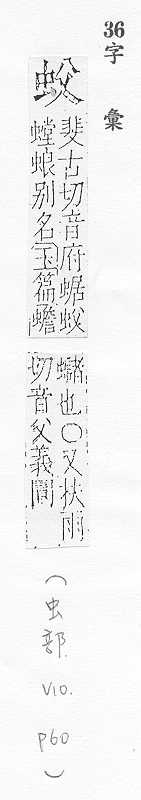 36字彙
蚥
斐古切音府蜛蚥
螳蜋别名玉篇蟾
蠩也○又扶雨
切音父義同
(虫部.
V10.
P60)